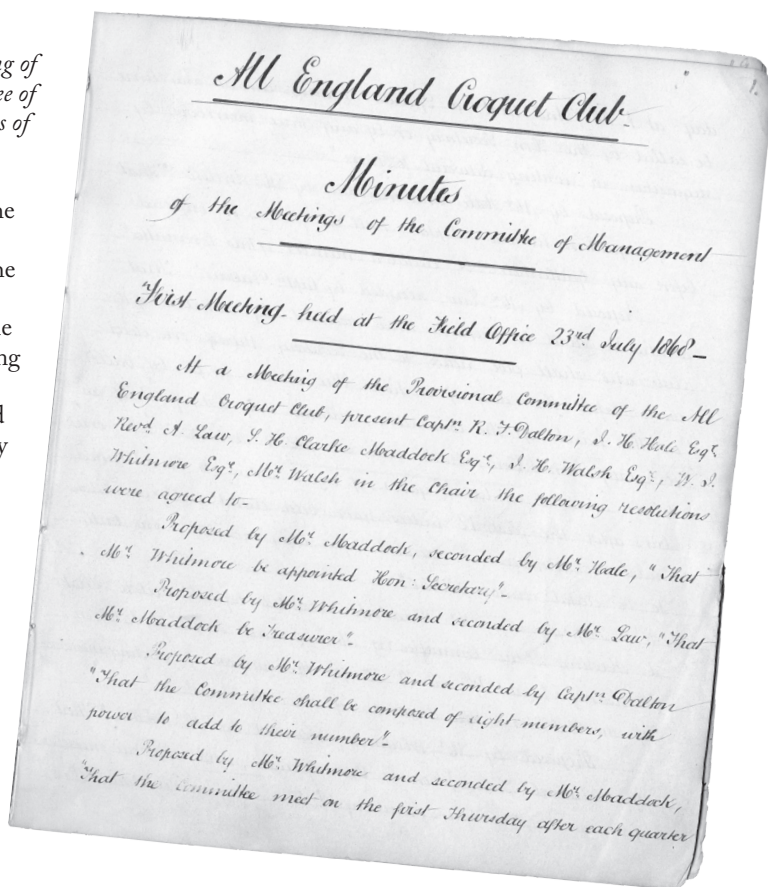 ng of
ee of
s of
ne
ne
le
ng
d
y
1.
All England Croquet Club-
Minutes
of the Meetings of the Committee of Management
"First Meeting- held at the Field Office 23rd July 1868-
At a Meeting of the Provisional Committee of the All
England Croquet Club, present Captn R. F. Dalton, J. H. Hale Esqr,
Revd A. Law, S. H. Clarke Maddock Esqr, J. H. Walsh Esqr, W. J.
Whitmore Esqr, Mr Walsh in the Chair the following resolutions
were agreed to-
Proposed by Mr Maddock, seconded by Mr Hale, "That
Mr Whitmore be appointed Hon: Secretary"-
Proposed by Mr Whitmore and seconded by Mr Law, "That
Mr Maddock be Treasurer"-
Proposed by Mr Whitmore and seconded by Captn Dalton
"That the Committee shall be composed of eight members, with
power to add to their number"-
Proposed by Mr Whitmore and seconded by Mr Maddock,
"That the Committee meet on the first Thursday after each quarter